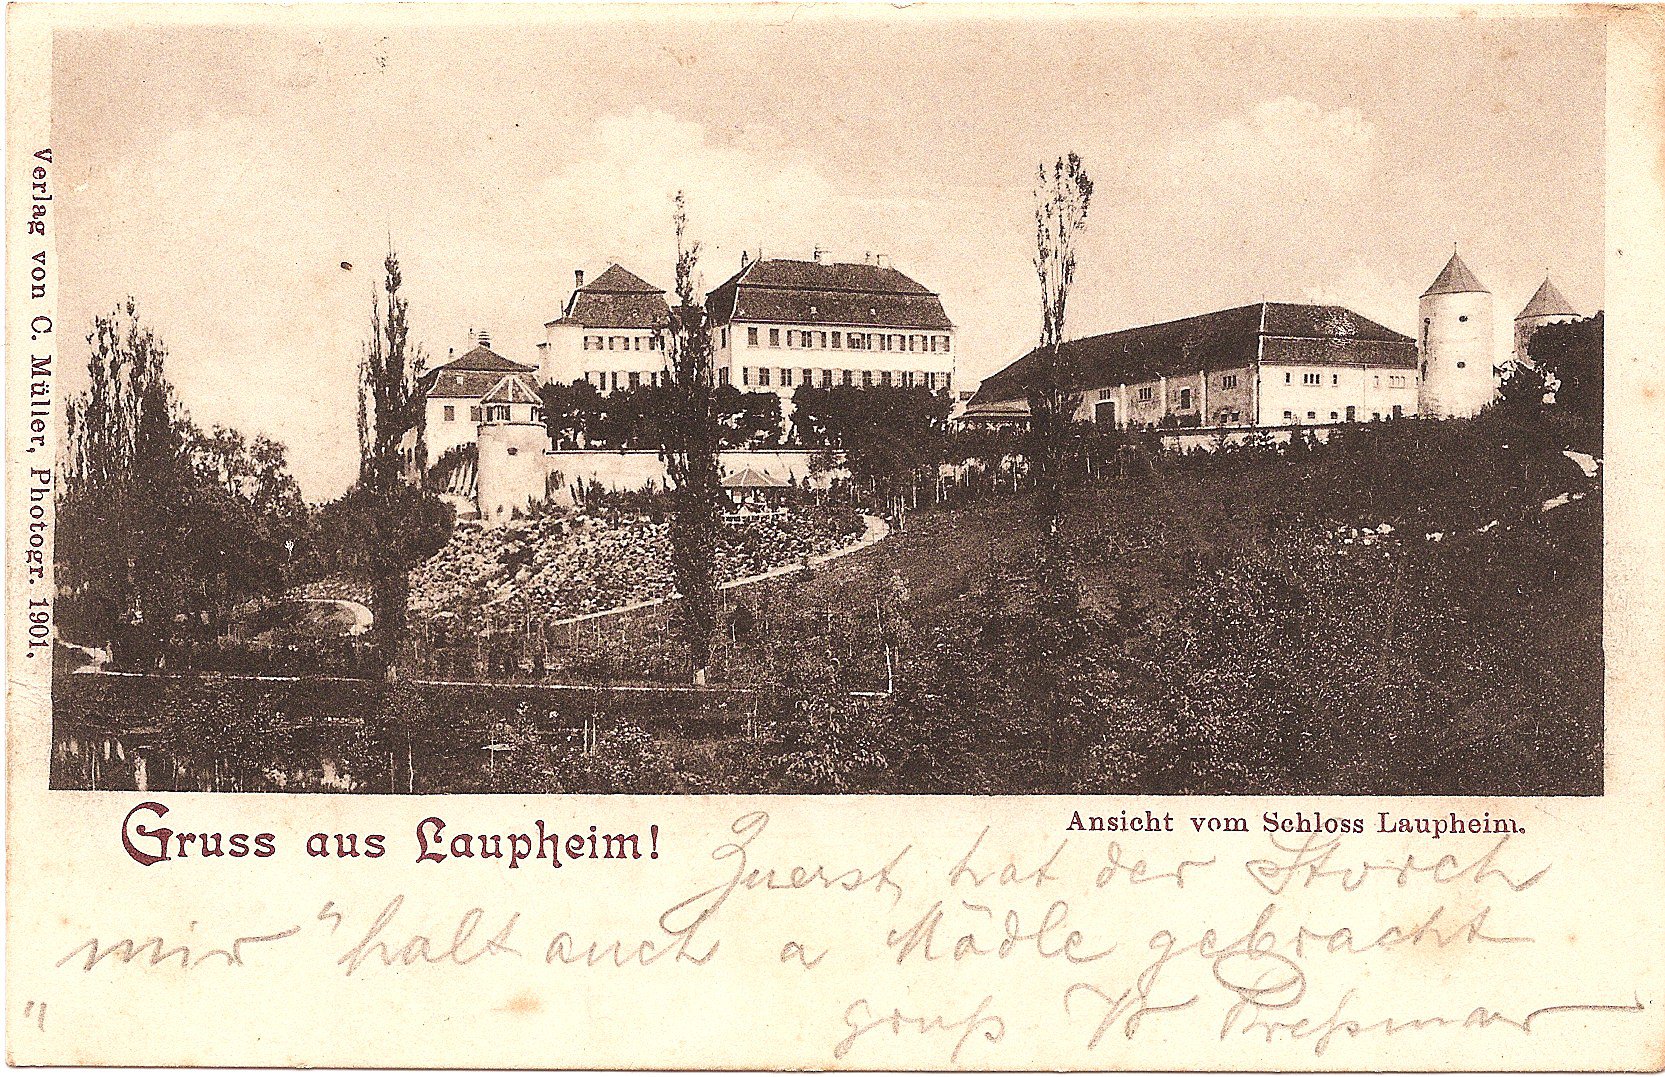 Verlag von C. Müller, Photogr. 1901.
Gruss aus Laupheim!
Ansicht vom Schloss Laupheim.
Zuerst hat der Storch
mir "halt auch a Mädle gebracht
"
gruß